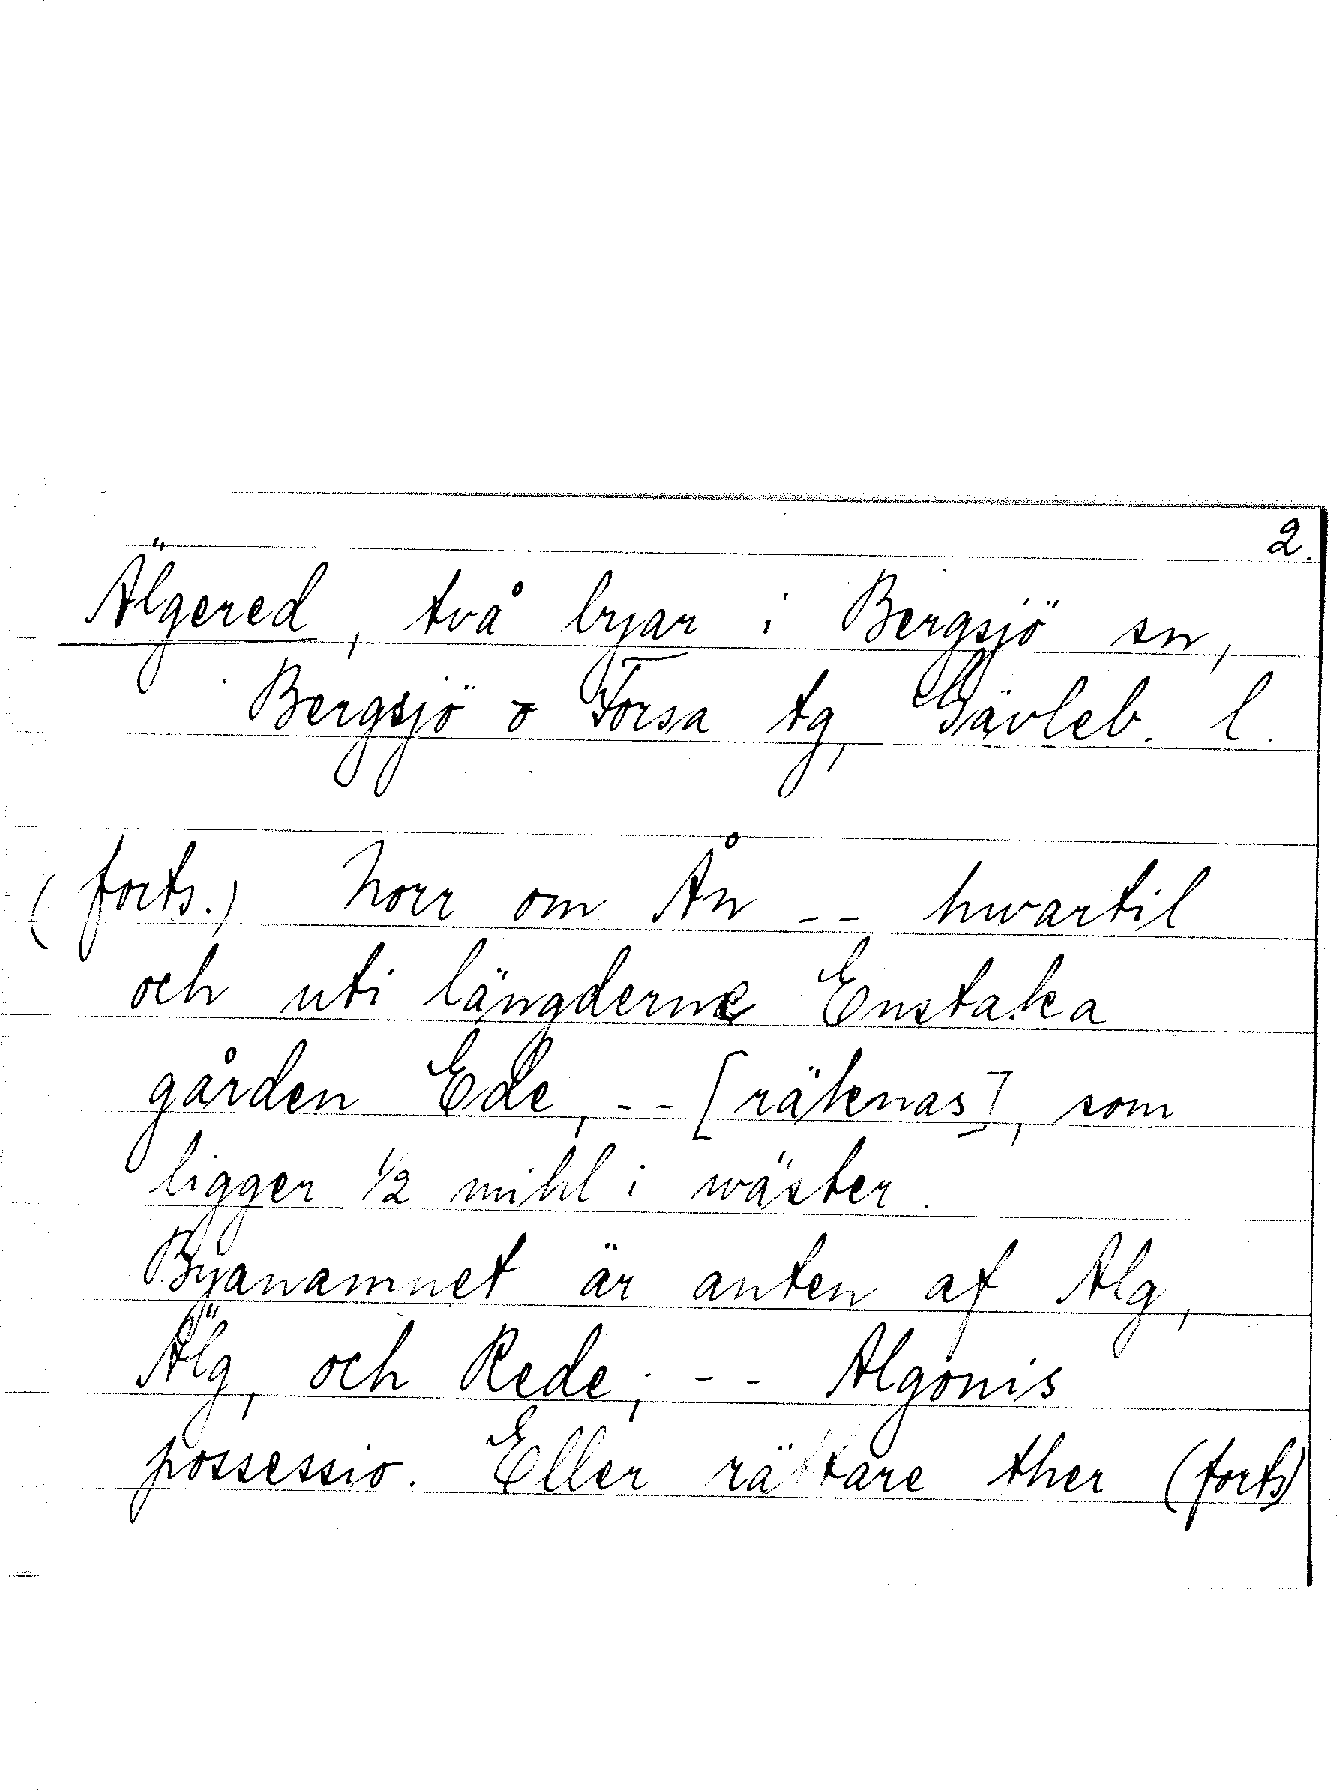 2.
Älgered, två byar i Bergsjö sn,
Bergsjö o Forsa tg, Gävleb. l.
(forts.) Norr om Ån -- hwartil
och uti längderne Enstaka
gården Ede, -- [räknas], som
ligger 1/2 mihl i wäster.
Byanamnet är anten af Alg,
Älg, och Rede; -- Algonis
possessio. Eller rättare ther (forts)